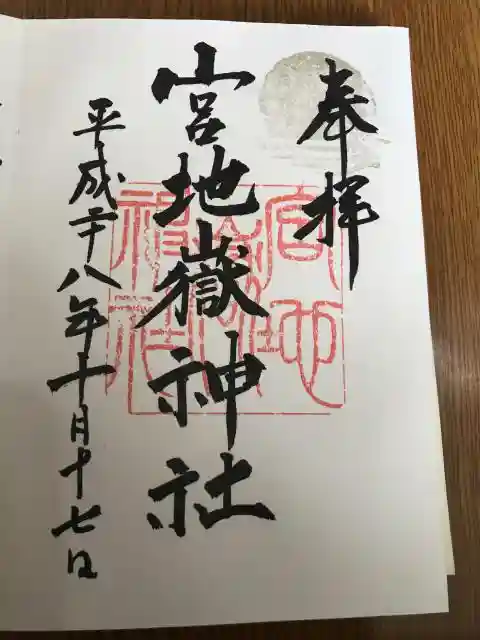 奉拝
宮地嶽神社
平成二十八年十月十七日
宮地
嶽
神社